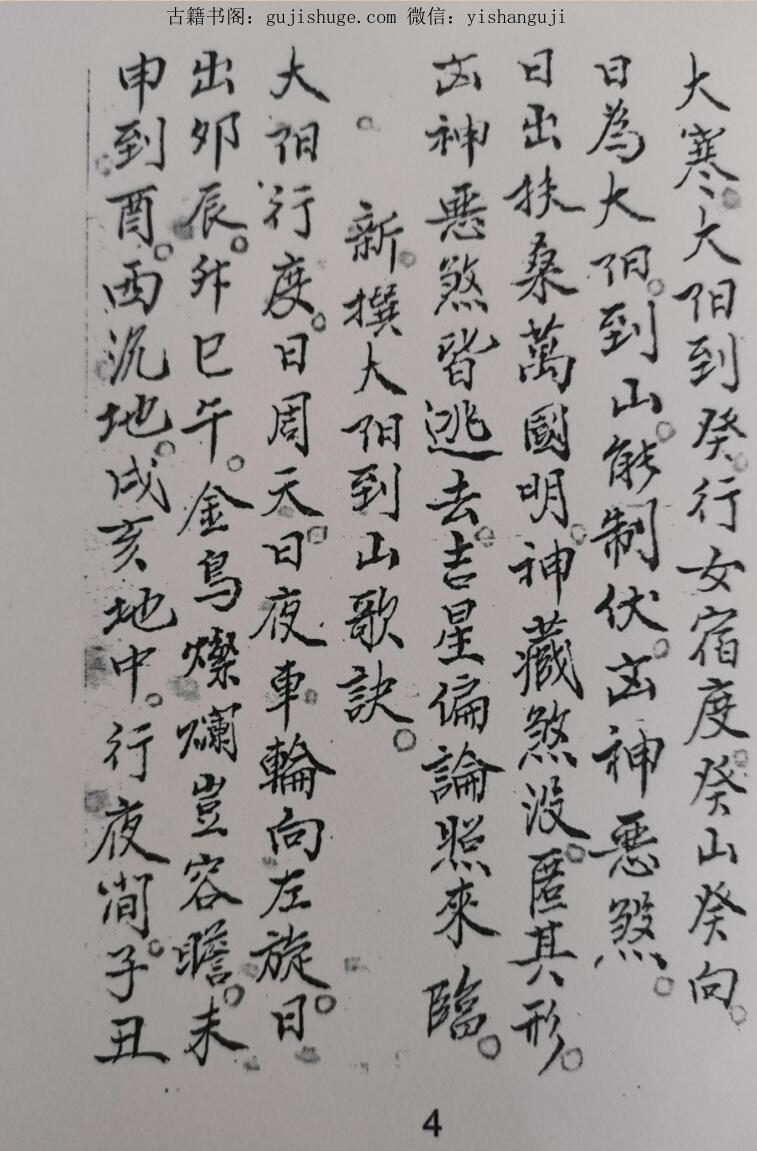 古籍书阁：gujishuge.com 微信：yishanguji
大寒。大阳到癸行女宿度。癸山癸向。
日為大阳。到山。能制伏。凶神惡煞。
日出扶桑萬國明。神藏煞没。匿其形。
凶神惡煞皆逃去。吉星偏論照來臨。
新撰大阳到山歌訣。
大阳行度。日周天。日夜車輪向左旋。日
出夘辰。升巳午。金烏燦爛豈容瞻。未
申到酉。西沉地。戌亥地中。行夜间。子丑
4